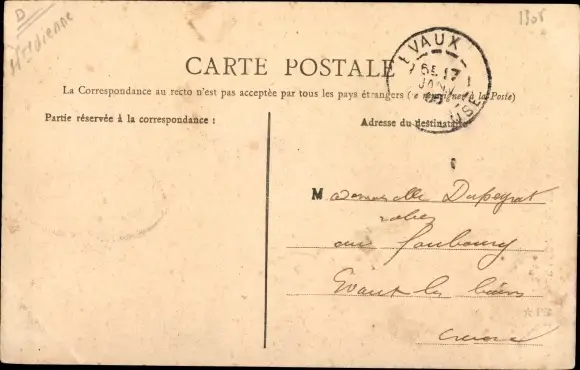 D
Hte Vienne
1305
EVAUX
6E 17
JANV
CREUSE
CARTE POSTALE
La Correspondance au recto n'est pas acceptée par tous les pays étrangers (se renseigner à la Poste)
Partie réservée à la correspondance :
Adresse du destinataire
Mademoiselle Dupeyrat
robes
au faubourg
Evaux les bains
Creuse